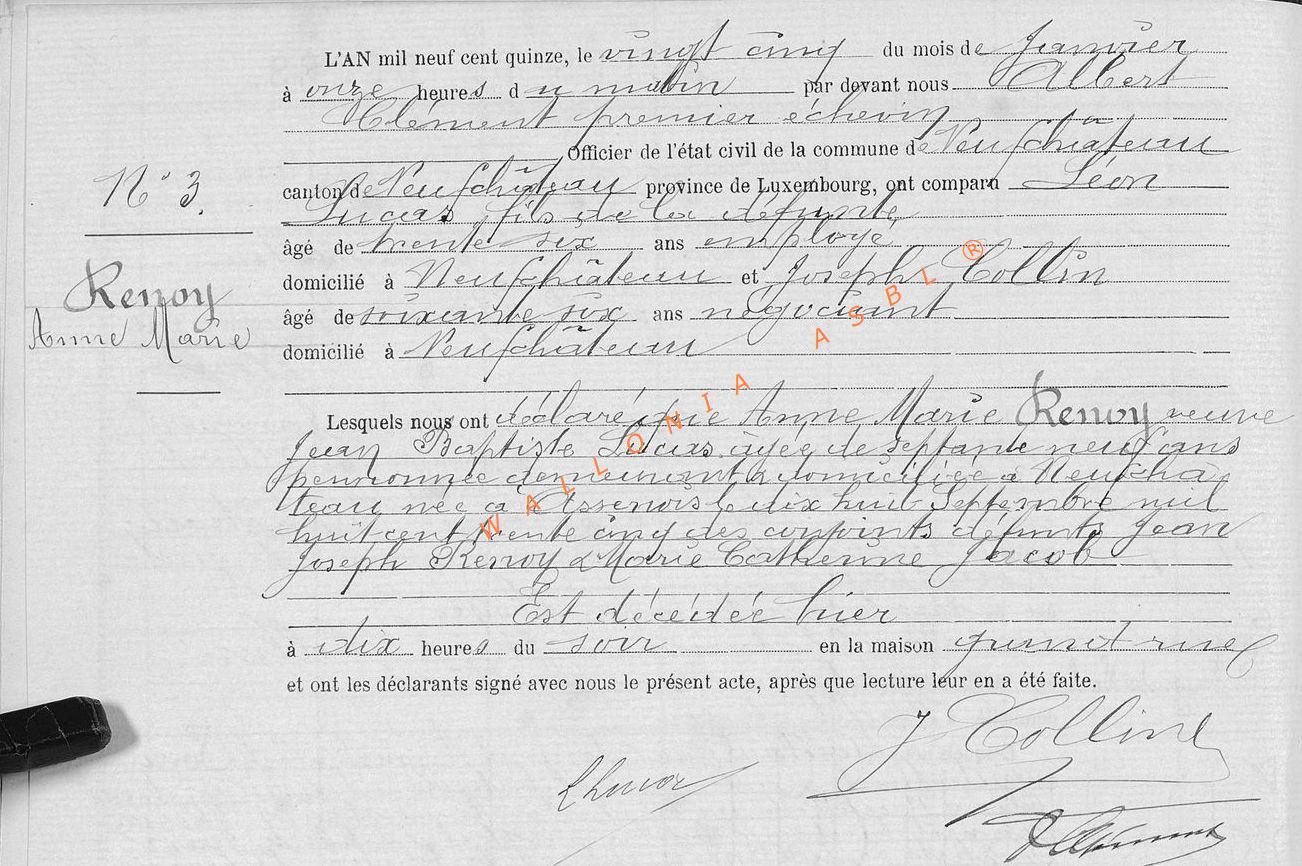 L'AN mil neuf cent quinze, le vingt cinq du mois de Janvier
à onze heures du matin par devant nous Albert
Clément premier échevin
Officier de l'état civil de la commune de Neufchâteau
N° 3.
canton de Neufchâteau province de Luxembourg, ont comparu Léon
Lucas, fils de la défunte,
âgé de trente six ans employé
domicilié à Neufchâteau et Joseph Collin
Renoy
Anne Marie
âgé de soixante six ans négociant
domicilié à Neufchâteau
Lesquels nous ont déclaré que Anne Marie Renoy veuve
Jean Baptiste Lucas âgée de septante neuf ans
pensionnée demeurant & domiciliée à Neufchâ
teau née à Assenois le dix huit Septembre mil
huit cent trente cinq des conjoints défunts Jean
Joseph Renoy & Marie Catherine Jacob
Est décédée hier
à dix heures du soir en la maison grand rue
et ont les déclarants signé avec nous le présent acte, après que lecture leur en a été faite.
J Collin
WALLONIA ASBL ®